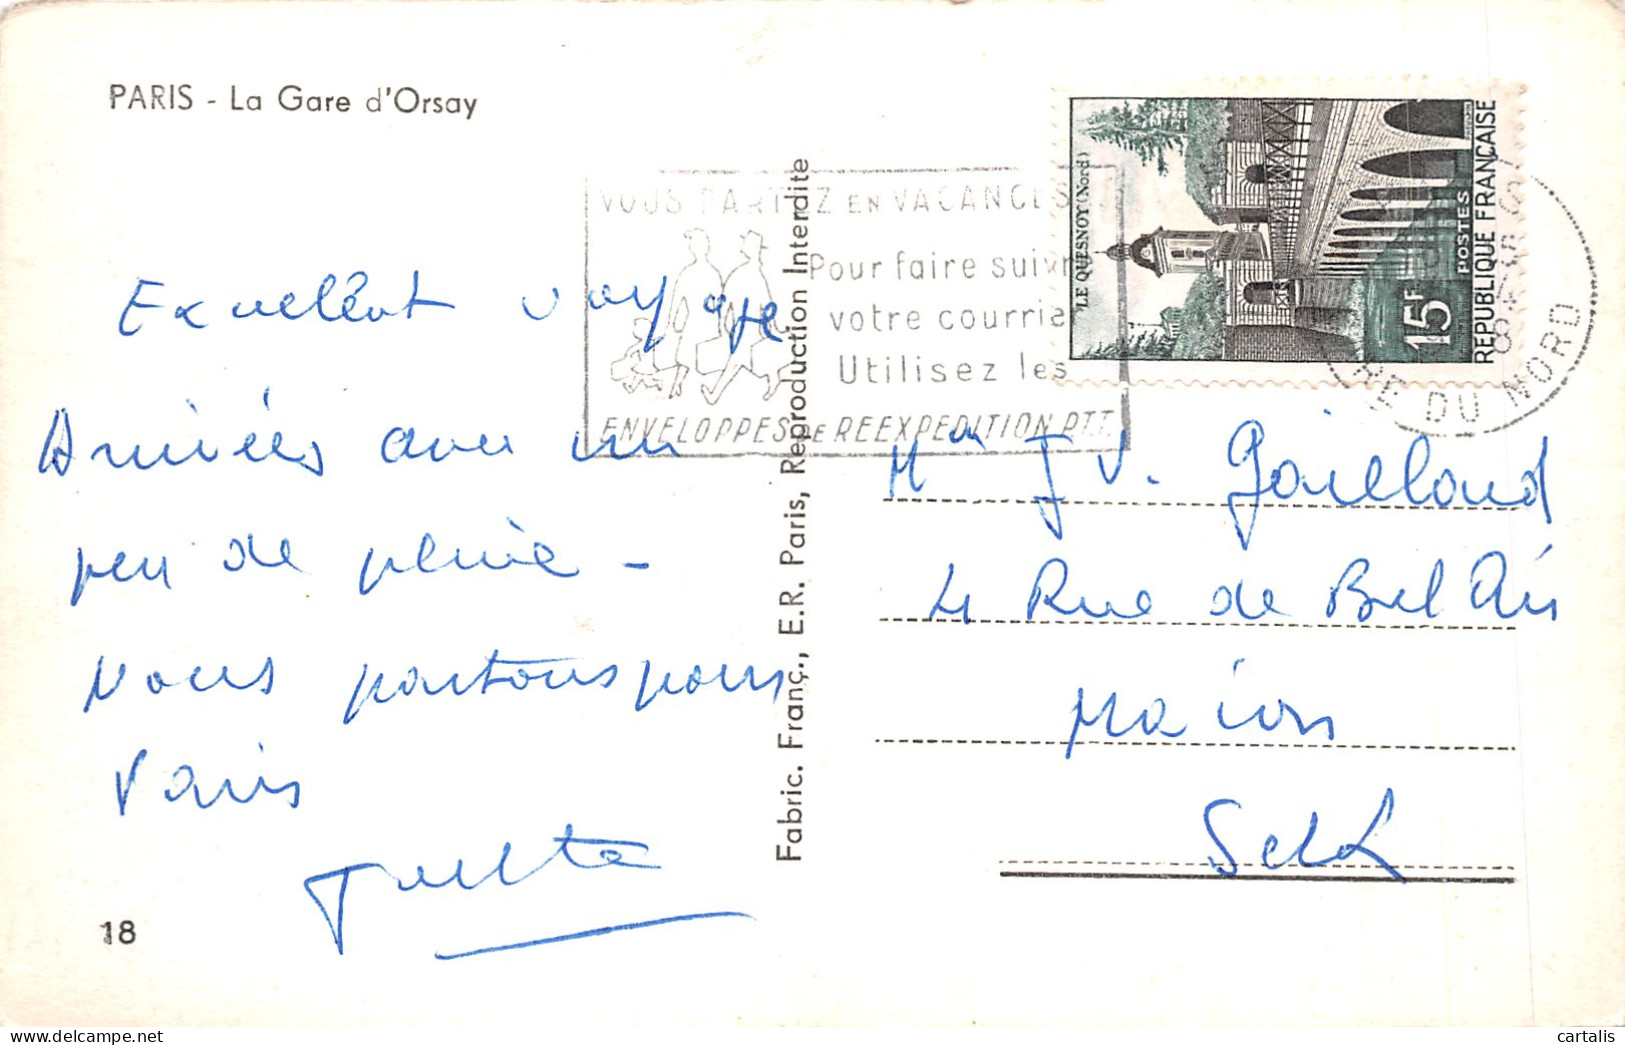 PARIS - La Gare d'Orsay
VOUS PARTEZ EN VACANCES
Pour faire suivre
votre courrier
Utilisez les
ENVELOPPES DE REEXPEDITION P.T.T.
"LE QUESNOY (Nord)
15F
POSTES
REPUBLIQUE FRANÇAISE
RE DU NORD
Excellent voyage
Arrivées avec un
peu de pluie -
Nous partons pour
Paris
18
Fabric. Franç., E.R. Paris, Reproduction Interdite
4 Rue de Bel Air